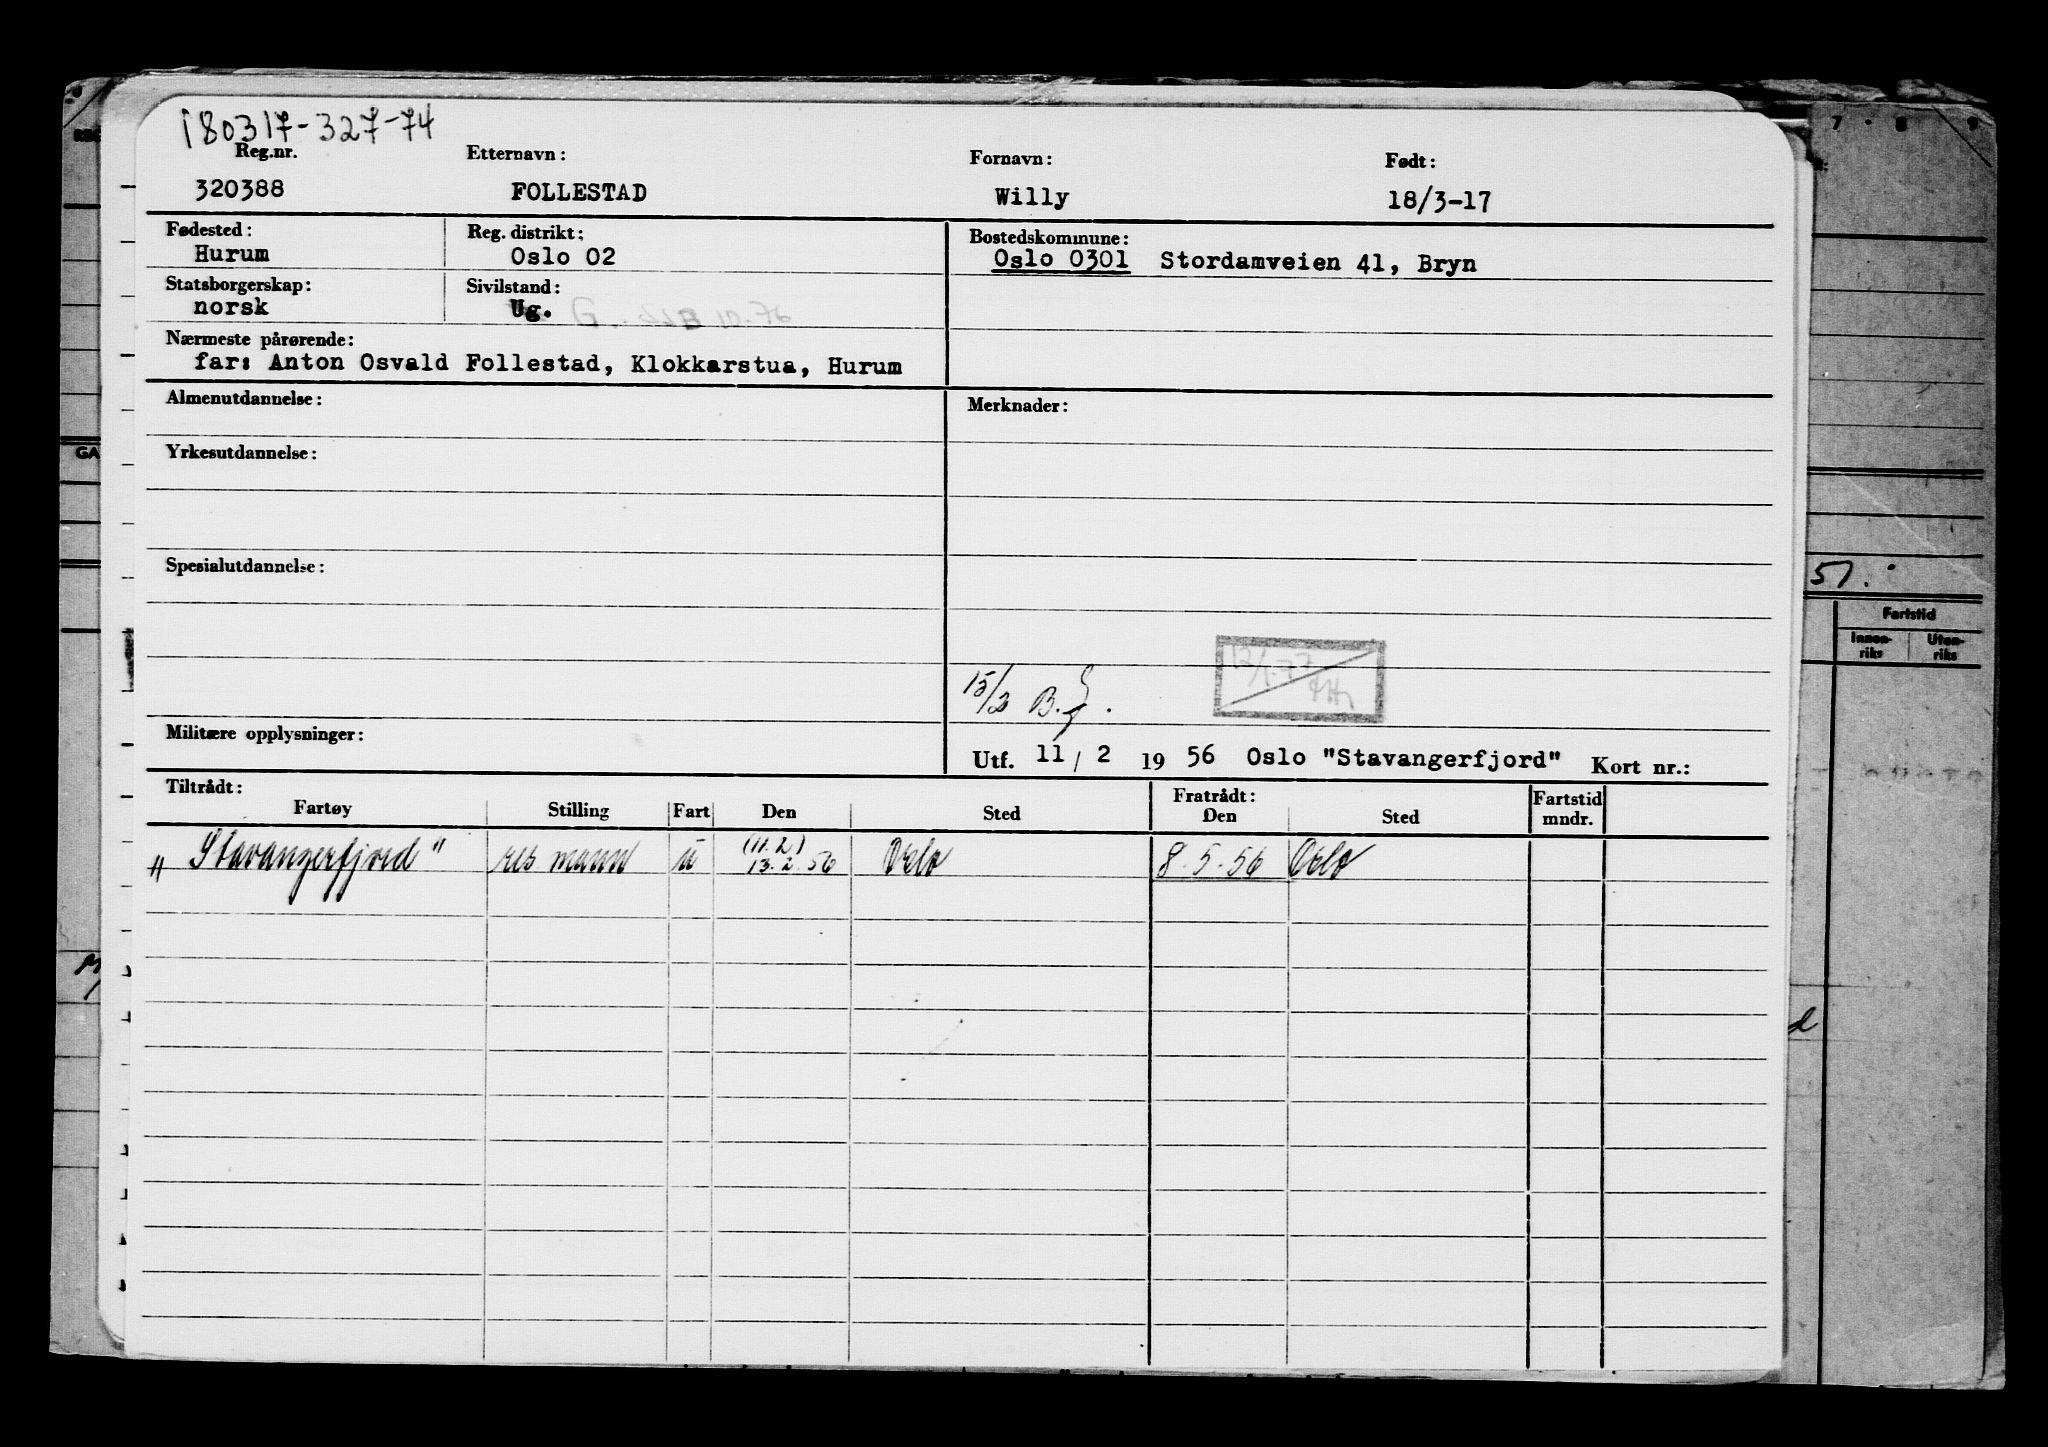 180317-327-74
Reg.nr. Etternavn: Fornavn: Født:
320388 FOLLESTAD Willy 18/3-17
Fødested: Reg. distrikt: Bostedskommune:
Hurum Oslo 02 Oslo 0301 Stordamveien 41, Bryn
Statsborgerskap: Sivilstand:
norsk Ug. G. 10.76
Nærmeste pårørende:
far: Anton Osvald Follestad, Klokkarstua, Hurum
Almenutdannelse: Merknader:
Yrkesutdannelse:
Spesialutdannelse:
15/2 B.
Militære opplysninger:
Utf. 11/2 1956 Oslo "Stavangerfjord" Kort nr.:
Tiltrådt: Fratrådt: Fartstid
Fartøy Stilling Fart Den Sted Den Sted mndr.
(11.2)
"Stavangerfjord" res mann u 13.2.56 Oslo 8.5.56 Oslo
7 8 9
GA
51.
Fartstid
Innen- Uten-
riks riks